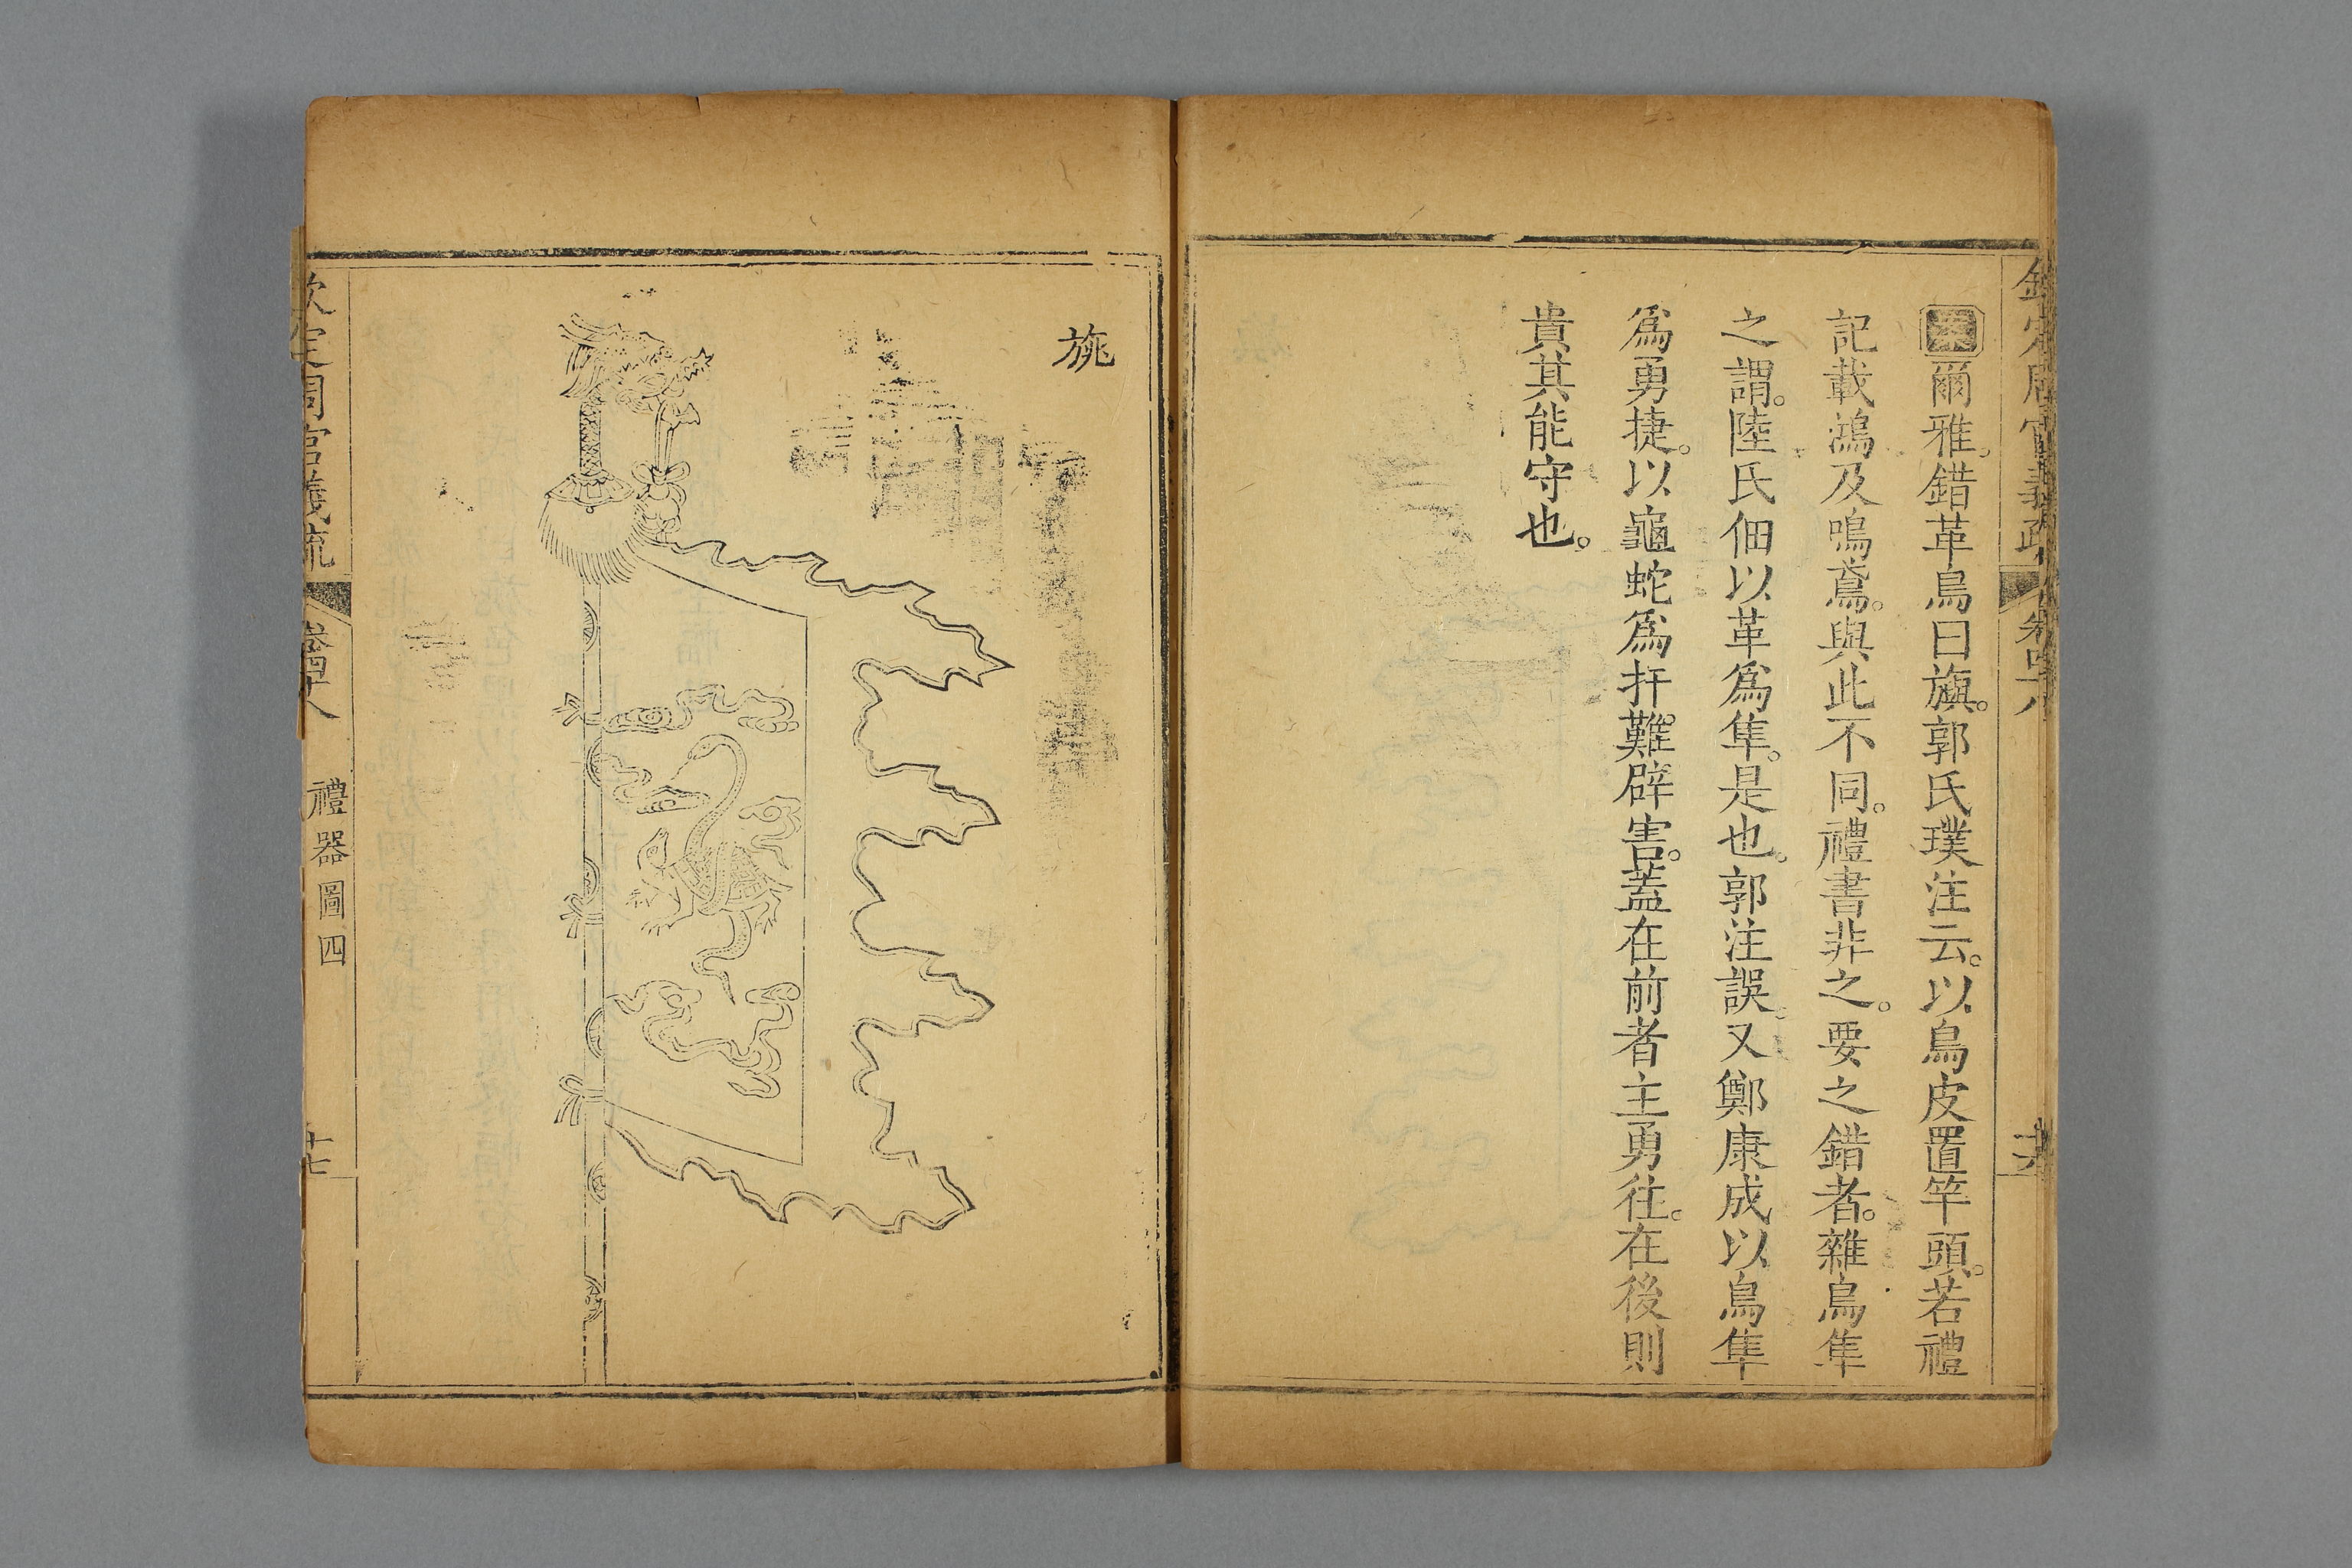 欽定周官義疏 卷四十八
爾雅。錯革鳥曰旟。郭氏璞注云。以鳥皮置竿頭。若禮
記載鴻及鳴鳶。與此不同。禮書非之。要之錯者。雜鳥隼
之謂。陸氏佃以革爲隼。是也。郭注誤。又鄭康成以鳥隼
爲勇捷。以龜蛇爲扞難辟害。蓋在前者主勇往。在後則
貴其能守也。
旐
欽定周官義疏 卷四十八 禮器圖四 十七